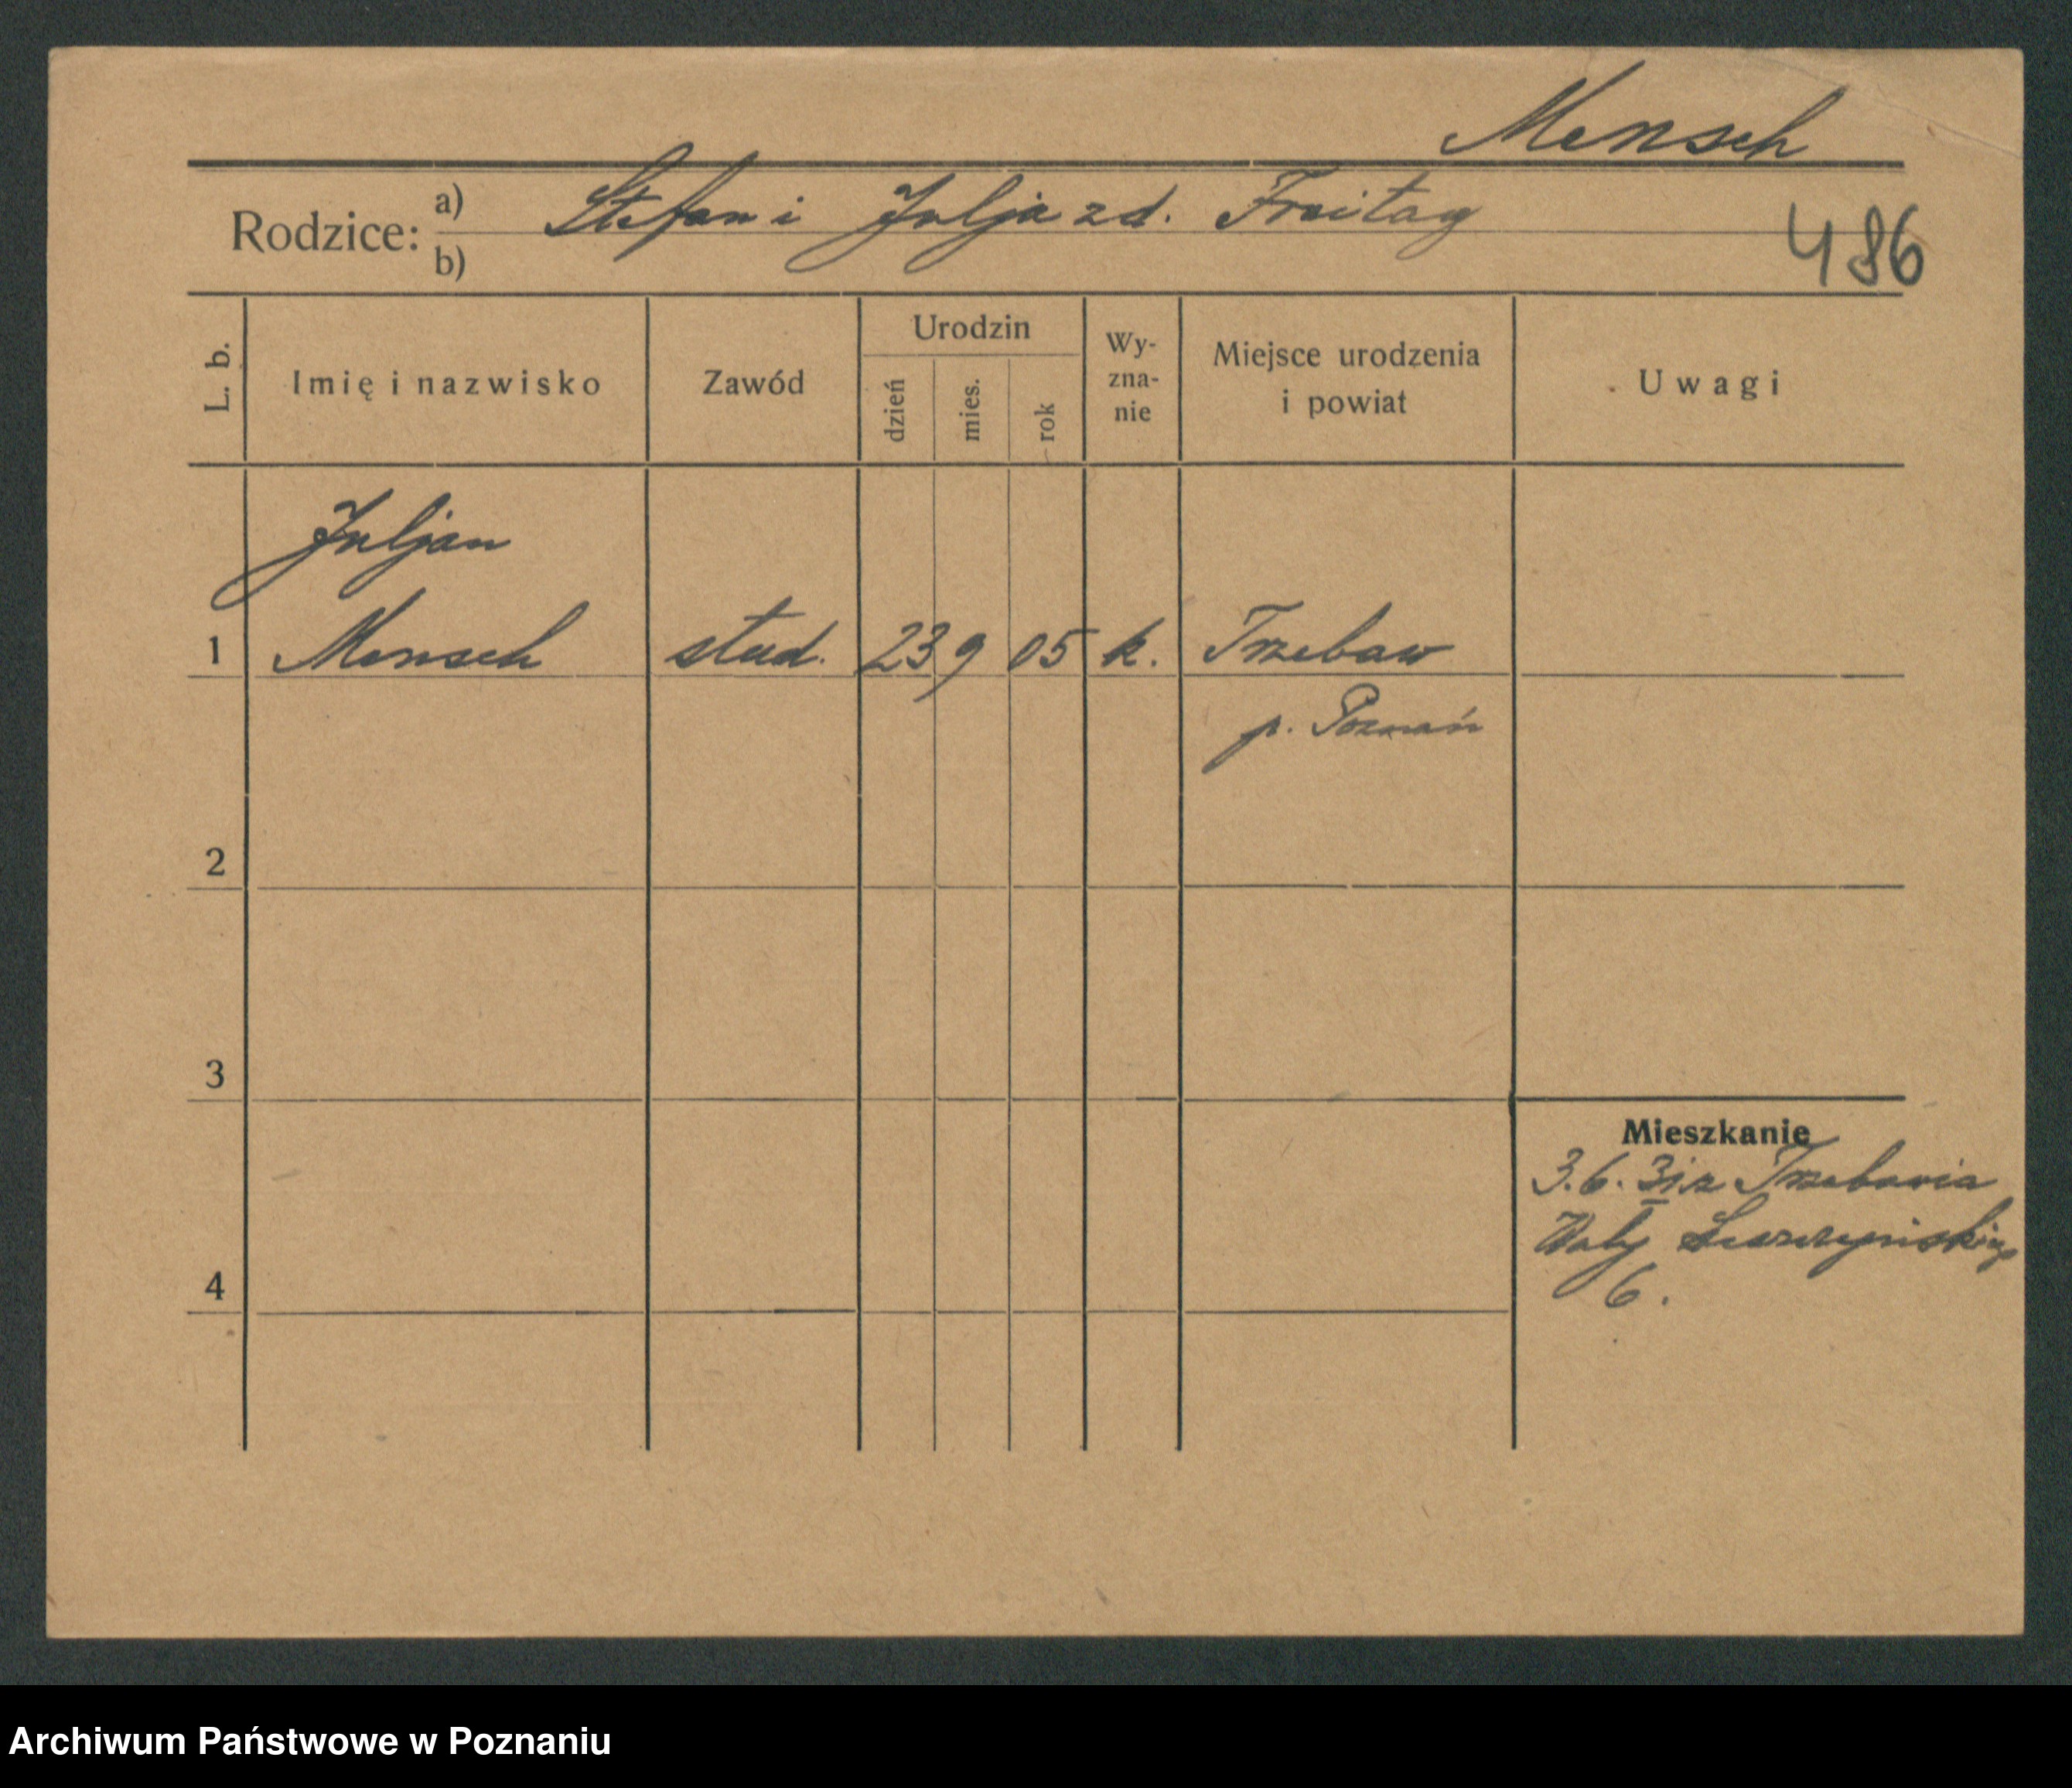 Mensch
Rodzice: a) Stefan i Julja zd. Freitag
b)
486
L. b.
Imię i nazwisko
Zawód
Urodzin
dzień
mies.
rok
Wy-
zna-
nie
Miejsce urodzenia
i powiat
Uwagi
Juljan
1 Mensch stud. 23 9 05 k. Trzebaw
p. Poznań
2
3
4
Mieszkanie
3.6.31 z Trzebawia
Wały Leszczyńskiego
6.
Archiwum Państwowe w Poznaniu